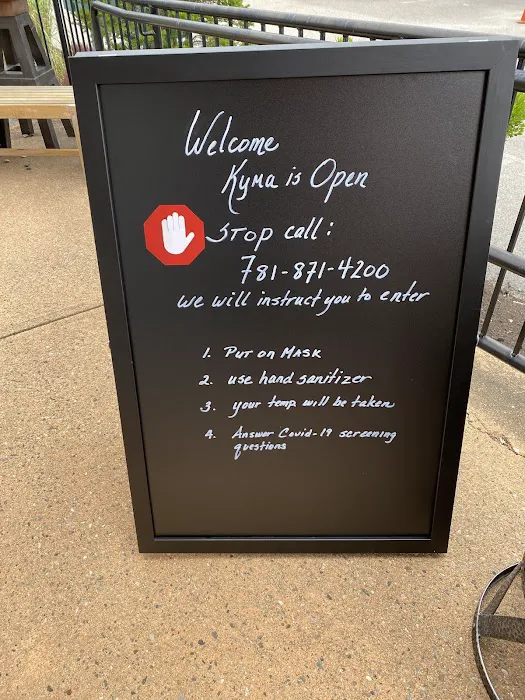 Welcome
Kyma is Open
STOP call:
781-871-4200
we will instruct you to enter
1. PUT on MASK
2. use hand sanitizer
3. your temp will be taken
4. Answer Covid-19 screening
questions